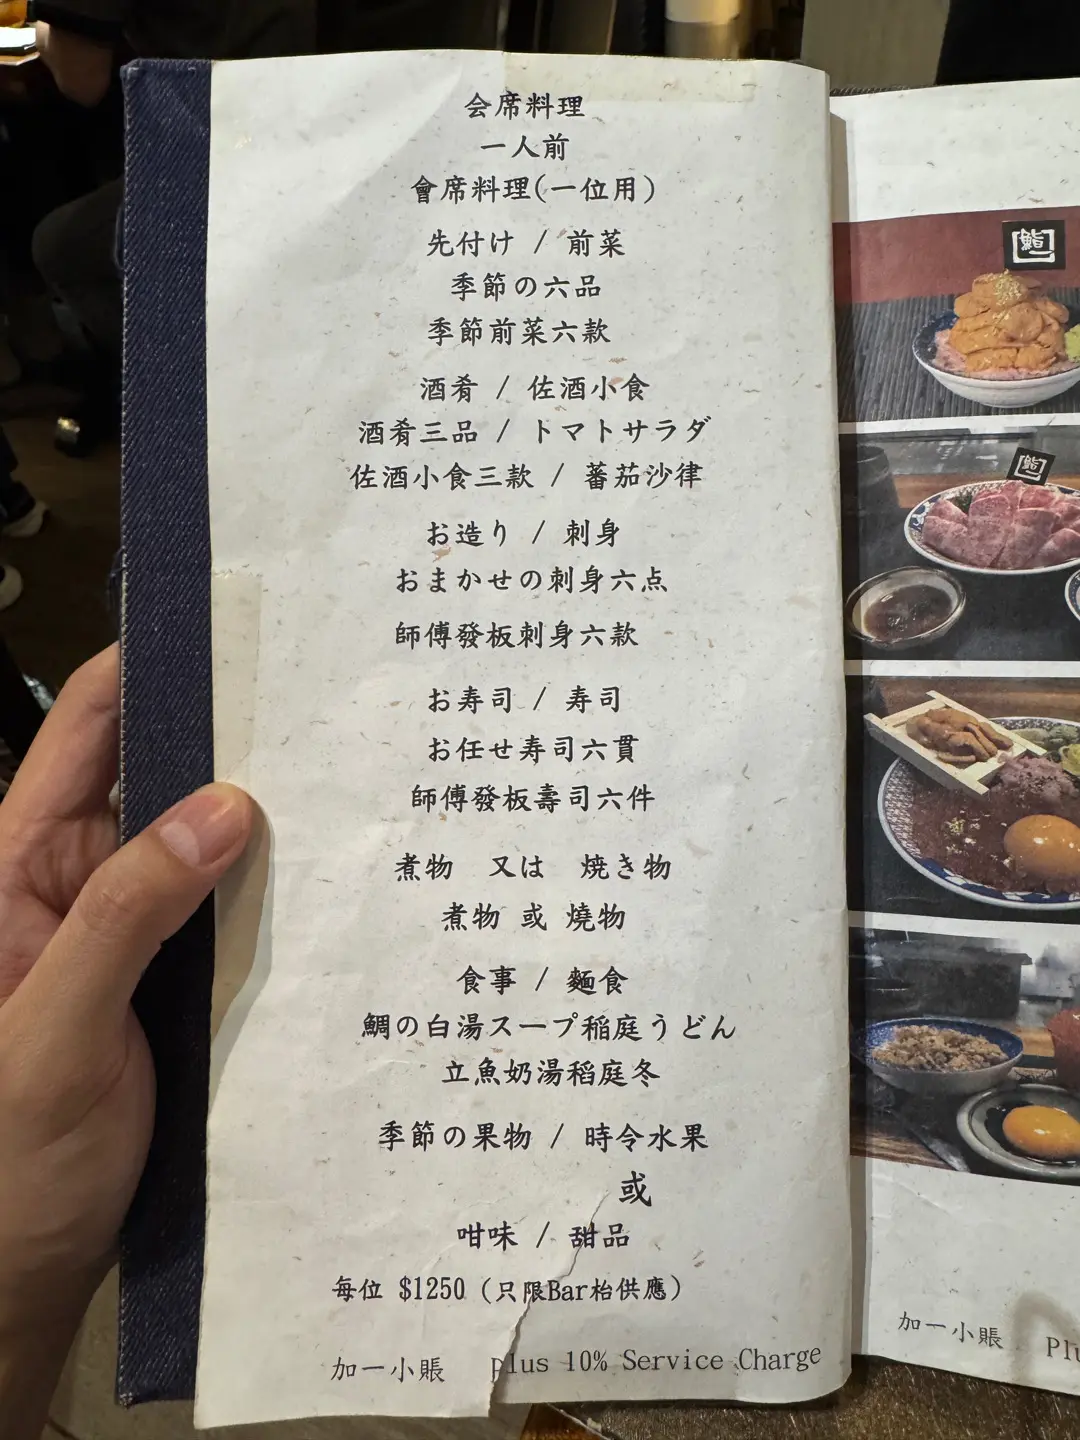 会席料理
一人前
會席料理(一位用)
先付け / 前菜
季節の六品
季節前菜六款
酒肴 / 佐酒小食
酒肴三品 / トマトサラダ
佐酒小食三款 / 蕃茄沙律
お造り / 刺身
おまかせの刺身六点
師傅發板刺身六款
お寿司 / 寿司
お任せ寿司六貫
師傅發板壽司六件
煮物 又は 焼き物
煮物 或 燒物
食事 / 麵食
鯛の白湯スープ稲庭うどん
立魚奶湯稻庭冬
季節の果物 / 時令水果
或
咁味 / 甜品
每位 $1250 (只限Bar枱供應)
加一小賬 plus 10% Service Charge
鮨一
鮨一
加一小賬 Plu